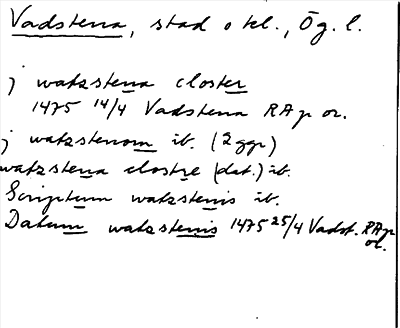 Vadstena, stad o kl., Ög. l.
j watzstena closter
1475 14/4 Vadstena RAp or.
j watzstenom ib. (2 ggr)
watzstena clostre (dat.) ib.
Scriptum watzstenis ib.
Datum watzstenis 1475 25/4 Vadst. RAp or.